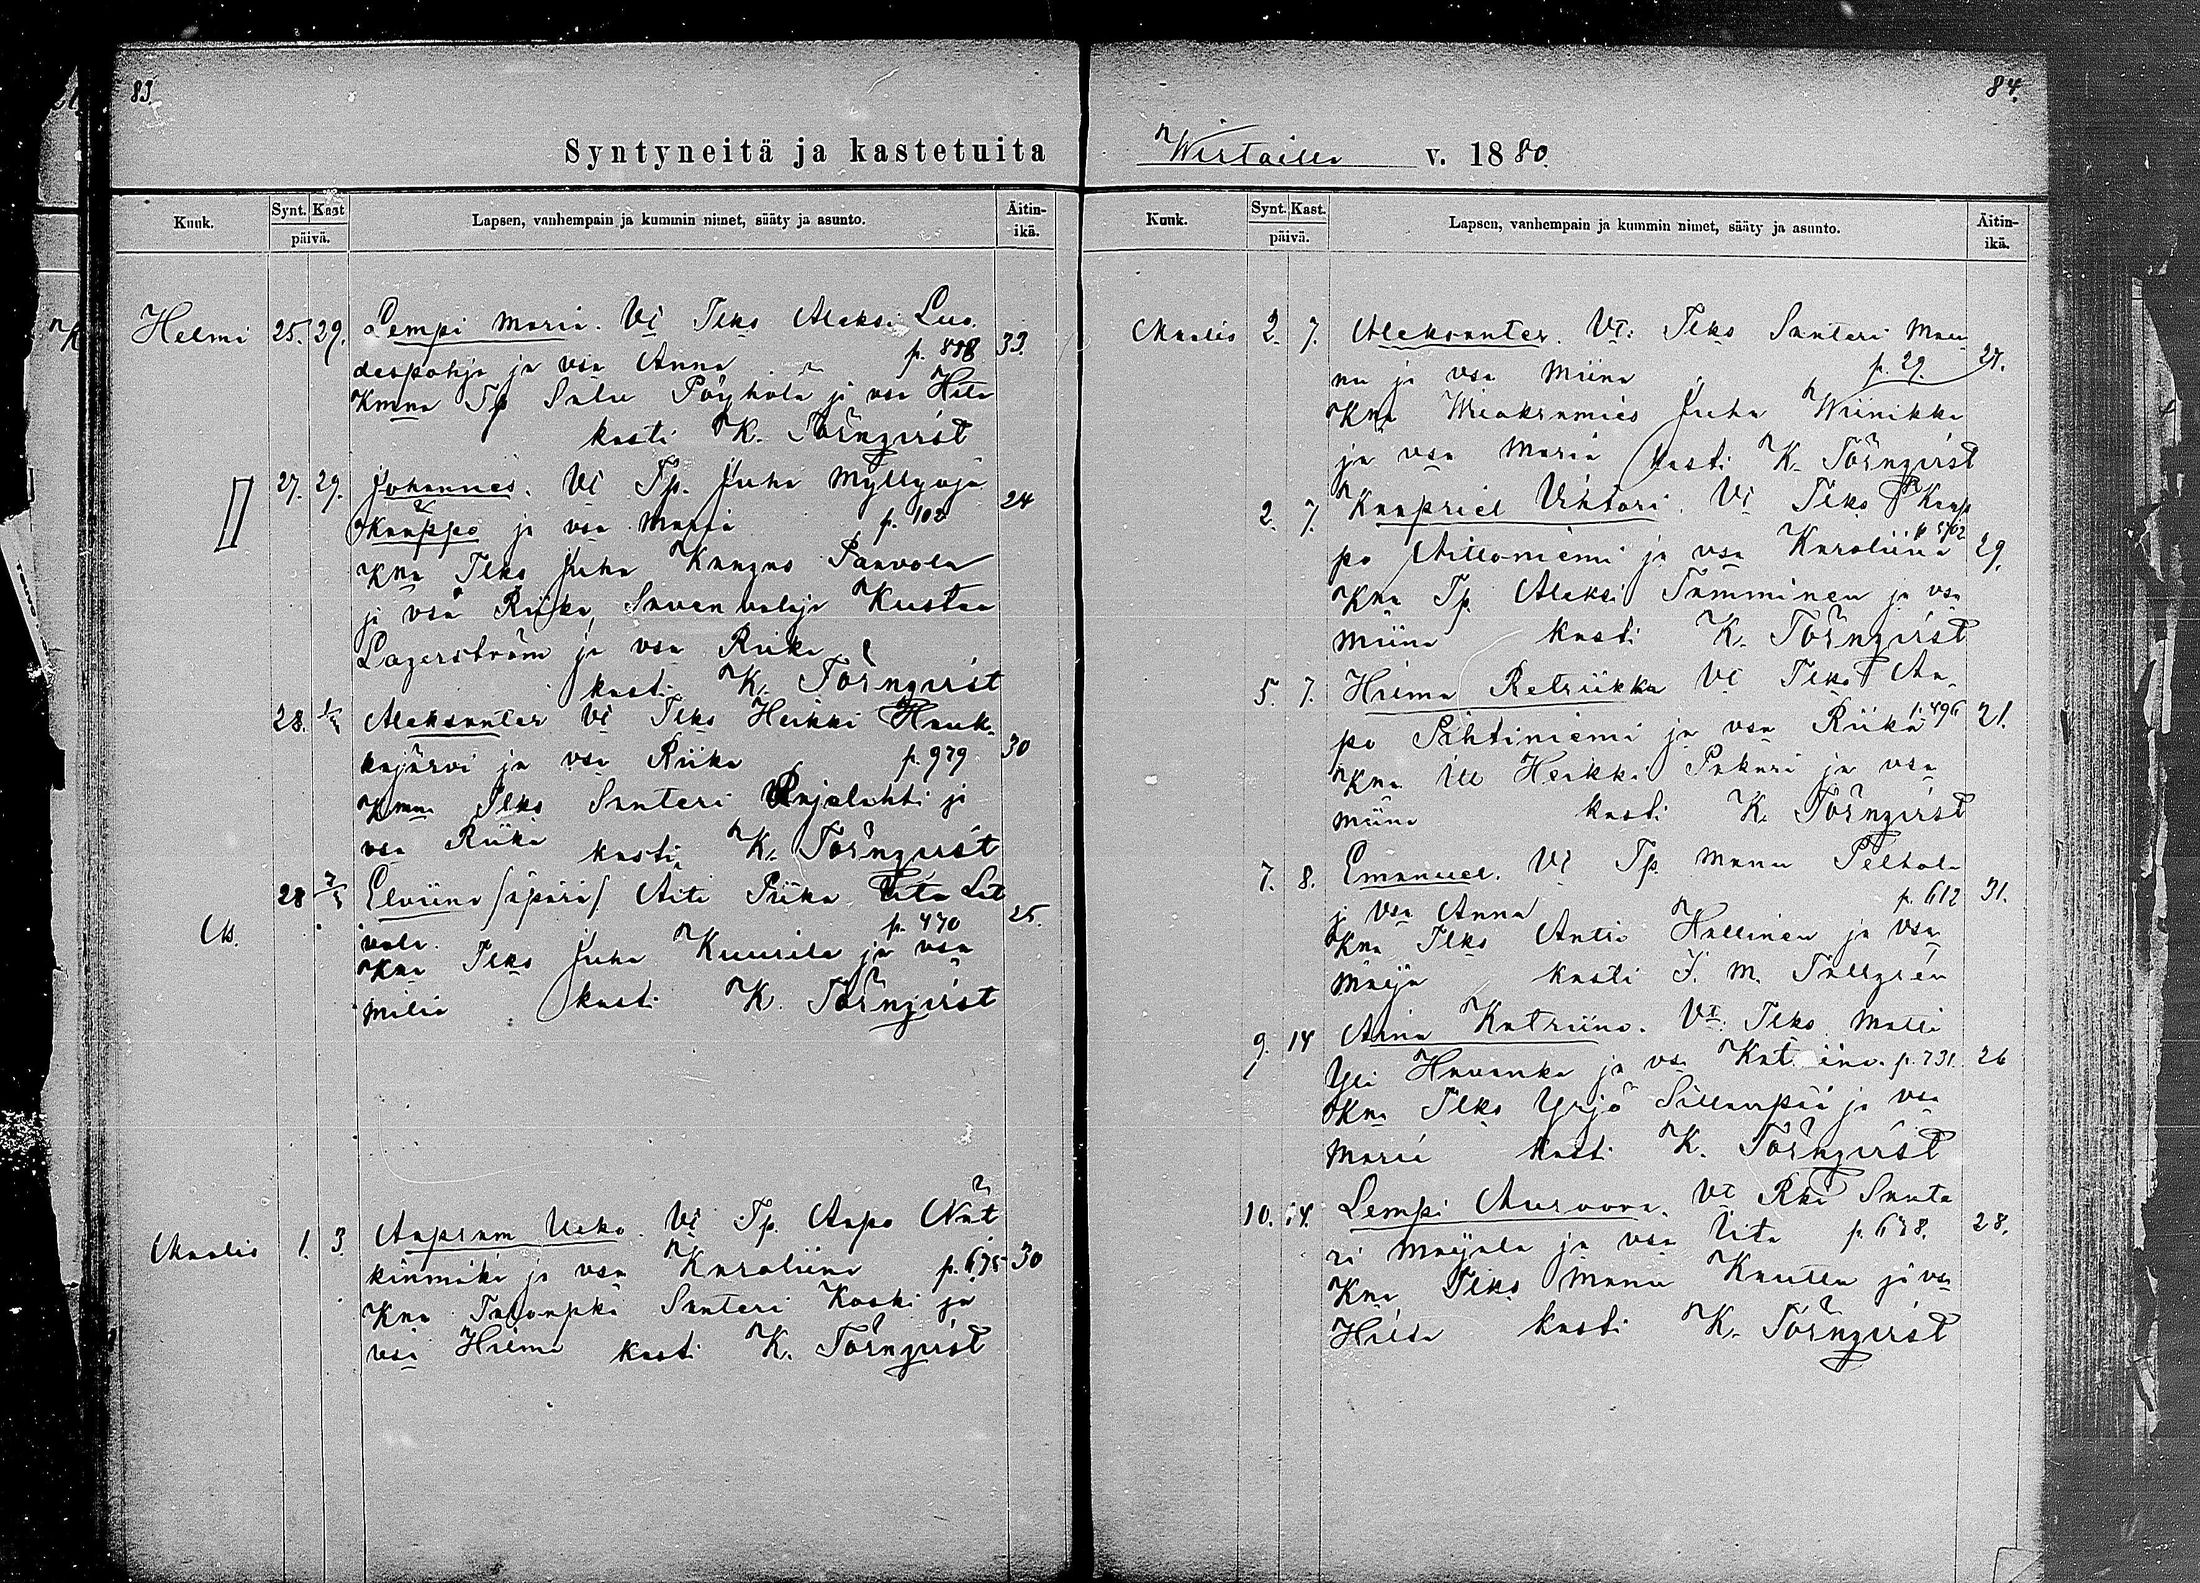 83.
Syntyneitä ja kastetuita
Kuuk.
Synt. Kast
päivä.
Lapsen, vanhempain ja kummin nimet, sääty ja asunto.
Äitin-
ikä.
Helmi 25. 29. Lempi Maria. Vi Tlks Aleksi Luo
despohja ja vsa Anna p. 888 33.
Kmna Tp Salu Pöyhölä ja vsa Heta
kasti K. Törnqvist
27. 29. Johannes. Vi Tp. Juha Myllyoja
Kauppo ja vsa Maria p. 102 24
Kna Tlks Juha Kangas Paavola
ja vsa Riika, Savenvalaja Kustaa
Lagerström ja vsa Riika
kasti K. Törnqvist
28. Aleksanter Vi Tlks Heikki Hauk-
kajärvi ja vsa Riika p. 979 30
Kmna Tlks Santeri Rajalahti ja
vsa Riika kasti K. Törnqvist
28 Elviina /äpärä/ Äiti Piika Vita
vala. p. 470 25.
Kna Tlks Juha Kuurila ja vsa
Milia kasti K. Törnqvist
Maalis 1. 3. Aapram Ucko. Vi Tp. Aapo Nat
kinmäki ja vsa Karoliina p. 675 30
Kna Talonpka Santeri Koski ja
vsa Hilma kasti K. Törnqvist
84.
Wirtailla v. 1880.
Kuuk.
Synt. Kast.
päivä.
Lapsen, vanhempain ja kummin nimet, sääty ja asunto.
Äitin-
ikä.
Maalis 2. 7. Aleksanter. Vi: Tlks Santeri Mau
nu ja vsa Miina p. 29. 27.
Kna Juha Wiinikka
ja vsa Maria kasti K. Törnqvist
2. 7. Kaapriel Vihtori. Vi Tlks Kaap
po Aittoniemi ja vsa Karoliina 29.
Kna Tp. Aleksi Tamminen ja vsa
Miina kasti K. Törnqvist
5. 7. Hilma Retriikka Vi Tlks Aa
po Pihtiniemi ja vsa Riika p. 496 21.
Kna Itl Heikki Pakari ja vsa
Miina kasti K. Törnqvist
7. 8. Emanuel. Vi Tp. Manu Peltola
ja vsa Anna p. 612 31.
Kna Tlks Antti Hallinen ja vsa
Maija kasti J. M. Tallgrén
9. 14 Anna Katriina. Vi: Tlks Matti
Yli Havanka ja vsa Kat iina. p. 731. 26
Kna Tlks Yrjö Sillanpää ja vsa
Maria kasti K. Törnqvist
10. 14. Lempi Auroora. Vi Rkd Sante
ri Maijala ja vsa Vita p. 678. 28.
Kna Tlks Manu Kautta ja vsa
Hilda kasti K. Törnqvist